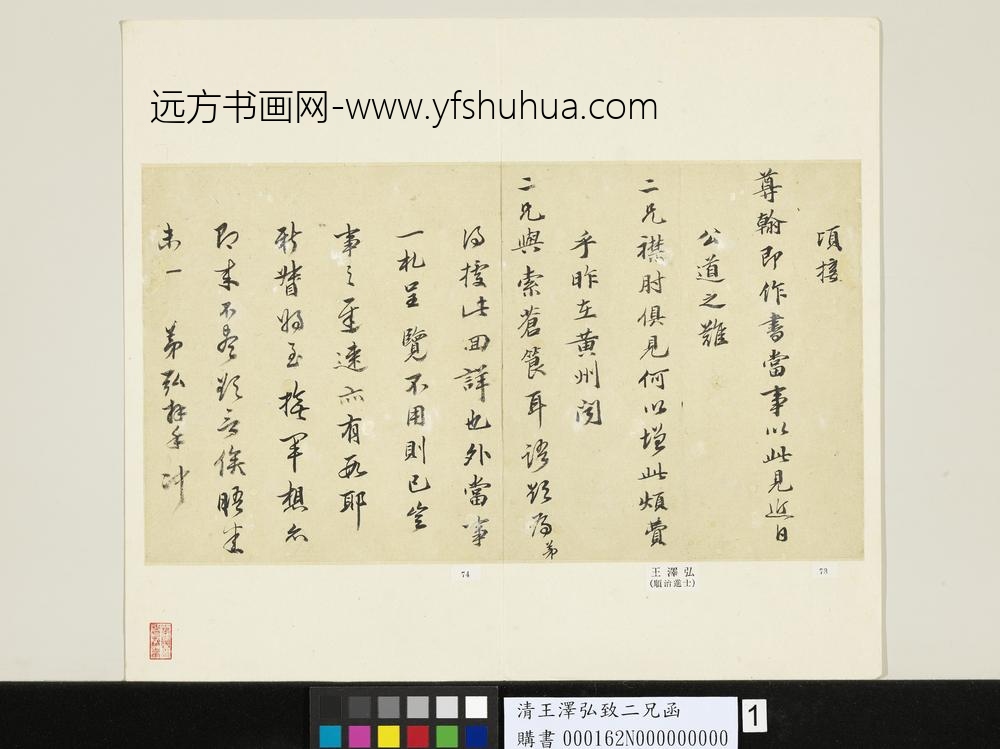 远方书画网-www.yfshuhua.com
頃接
尊翰即作書當事以此見近日
公道之難
二兄襟肘俱見何以增此煩費
乎昨在黃州閱
二兄與索蒼筤耳語歎為弟
得援此回詳也外當事
一札呈覽不用則已豈
事之遲速亦有數耶
新督將至撫軍想亦
即來不盡欲言俟晤遣
未一 弟弘拜手沖
74
王澤弘
(順治進士)
73
清王澤弘致二兄函
購書 000162N000000000
1